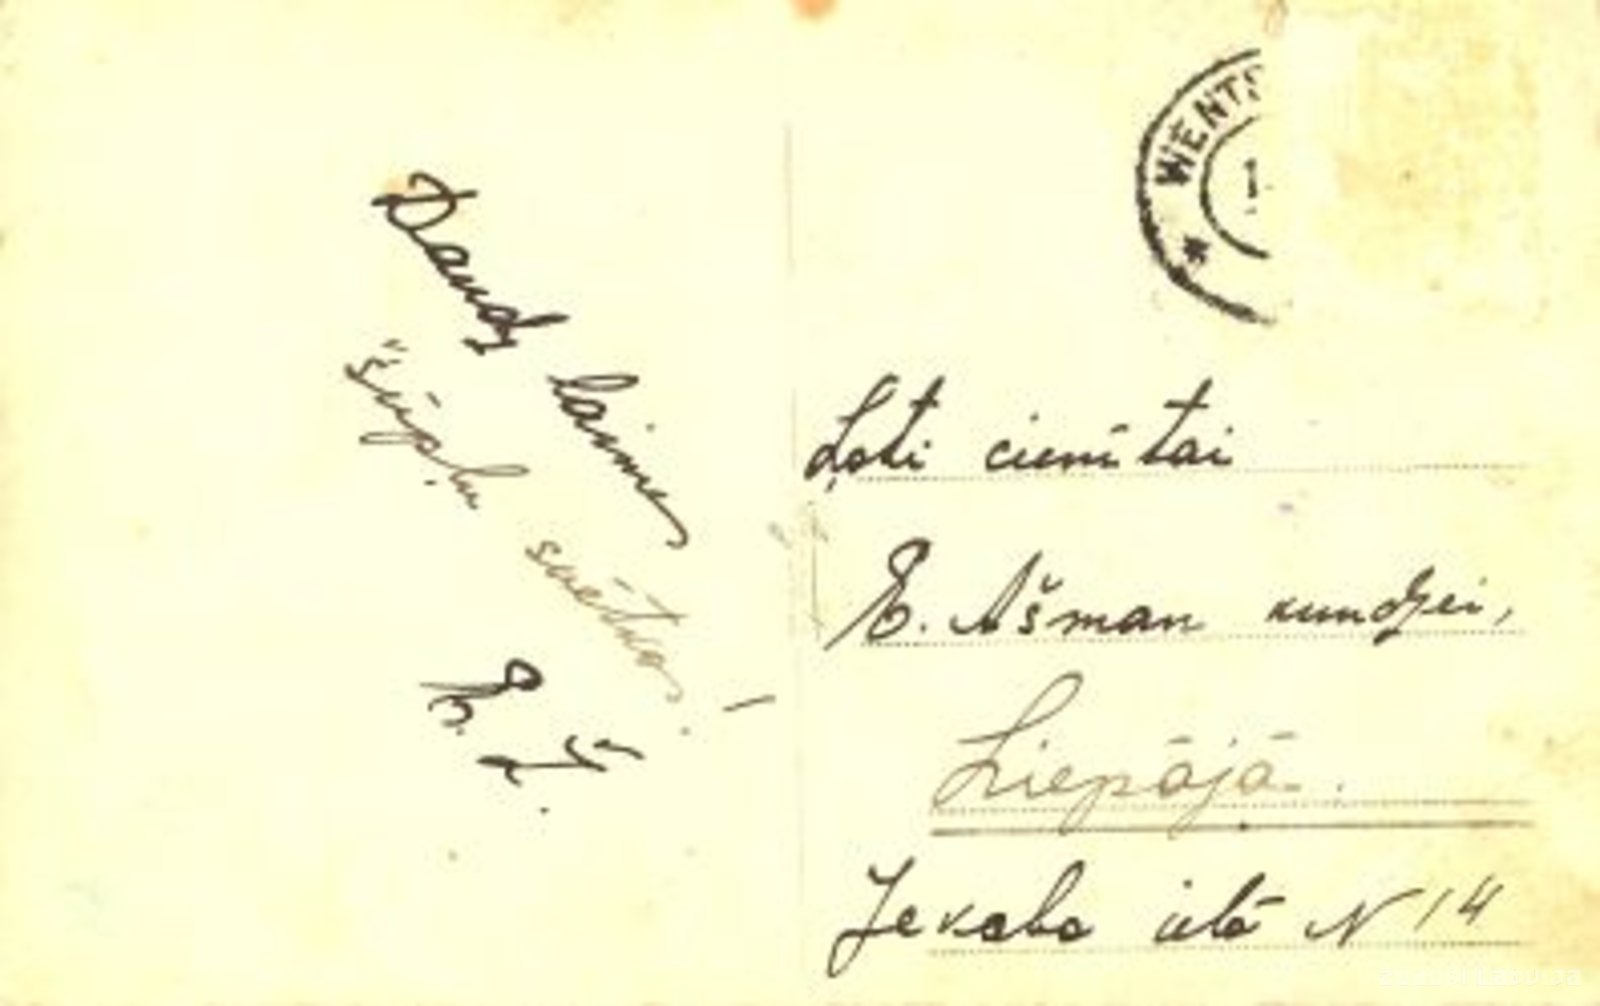 Daudz laimes
šūpļu svētkos!
E. Ž.
WENTS
Ļoti cienītai
E. Ašman kundzei,
Liepājā.
Jekaba ielā N 14